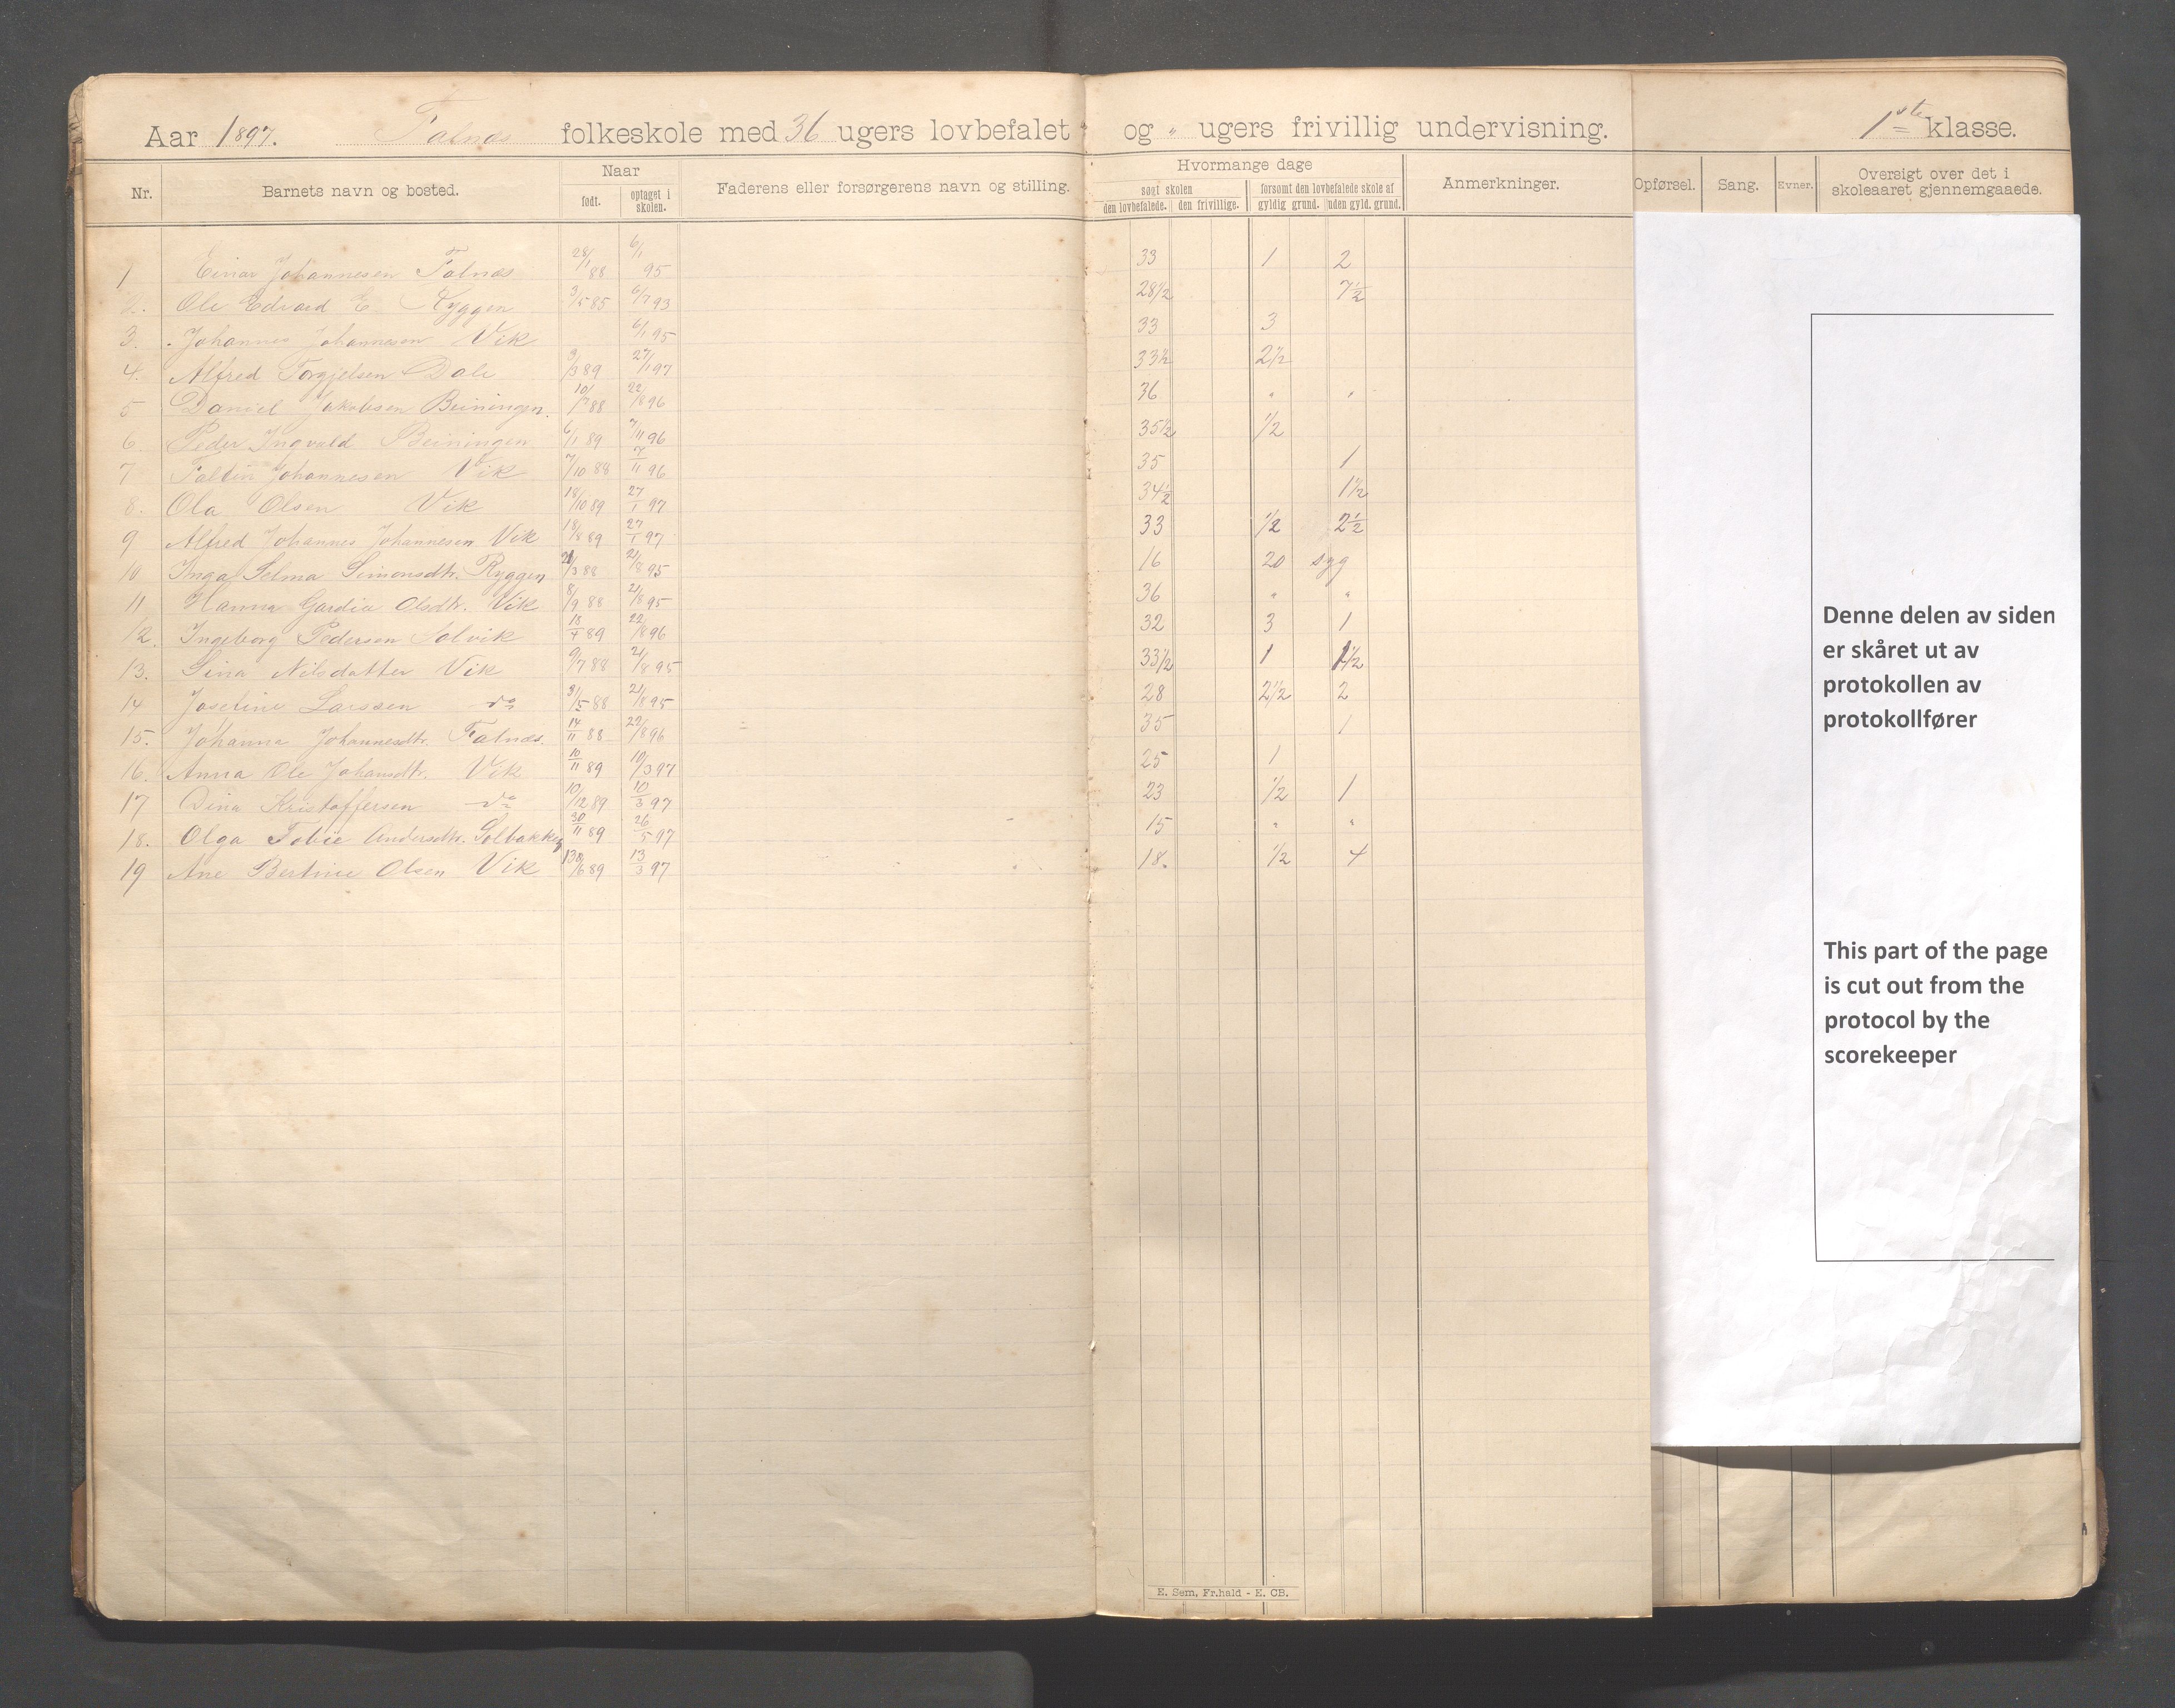 Aar 1897. Falnæs folkeskole med 36 ugers lovbefalet og " ugers frivillig undervisning. 1ste klasse.
Nr. Barnets navn og bosted. Naar født. optaget i skolen. Faderens eller forsørgerens navn og stilling. Hvormange dage søgt skolen den lovbefalede. den frivillige. forsømt den lovbefalede skole af gyldig grund. uden gyld. grund. Anmerkninger. Opførsel. Sang. Evner. Oversigt over det i skoleaaret gjennemgaaede.
1 Einar Johannesen Falnæs 28/1 88 6/1 95 33 1 2
2. Ole Edvard E. Ryggen 3/5 85 6/7 93 28 1/2 7 1/2
3. Johannes Johannesen Vik 6/1 95 33 3
4. Alfred Torgjelsen Dale 3/3 89 27/1 97 33 1/2 2 1/2
5 Daniel Jakobsen Beiningen. 88 22/8 96 36 " "
6 Peder Ingvald Beiningen 6/1 89 7/11 96 35 1/2 1/2
7 Johannesen Vik 7/10 88 7/11 96 35 1
8. Ola Olsen Vik 18/10 89 27/1 97 34 1/2 1 1/2
9 Alfred Johannes Johannesen Vik 18/8 89 27/1 97 33 1/2 2 1/2
10 Inga Selma Simonsdtr. Ryggen 21/3 88 21/8 95 16 20 syg
11 Hanna Gardia Olsdtr. Vik 8/9 88 21/8 95 36 " "
12. Ingeborg Pedersen Solvik 18/4 89 22/8 96 32 3 1
13. Sina Nilsdatter Vik 9/7 88 21/8 95 33 1/2 1 1 1/2
14 Josefine Larssen do 31/5 88 21/8 95 28 2 1/2 2
15. Johanna Johannesdtr. Falnæs. 14/11 88 22/8 96 35 1
16. Anna Ole Johansdtr. Vik 10/11 89 10/3 97 25 1
17 Dina Kristoffersen do 10/12 89 10/3 97 23 1/2 1
18. Olga Tobie Andersdtr. Solbakken 30/11 89 26/5 97 15 " "
19 Ane Bertine Olsen Vik 89 13/3 97 18. 1/2 4
Denne delen av siden
er skåret ut av
protokollen av
protokollfører
This part of the page
is cut out from the
protocol by the
scorekeeper
E. Sem, Fr.hald - E. CB.